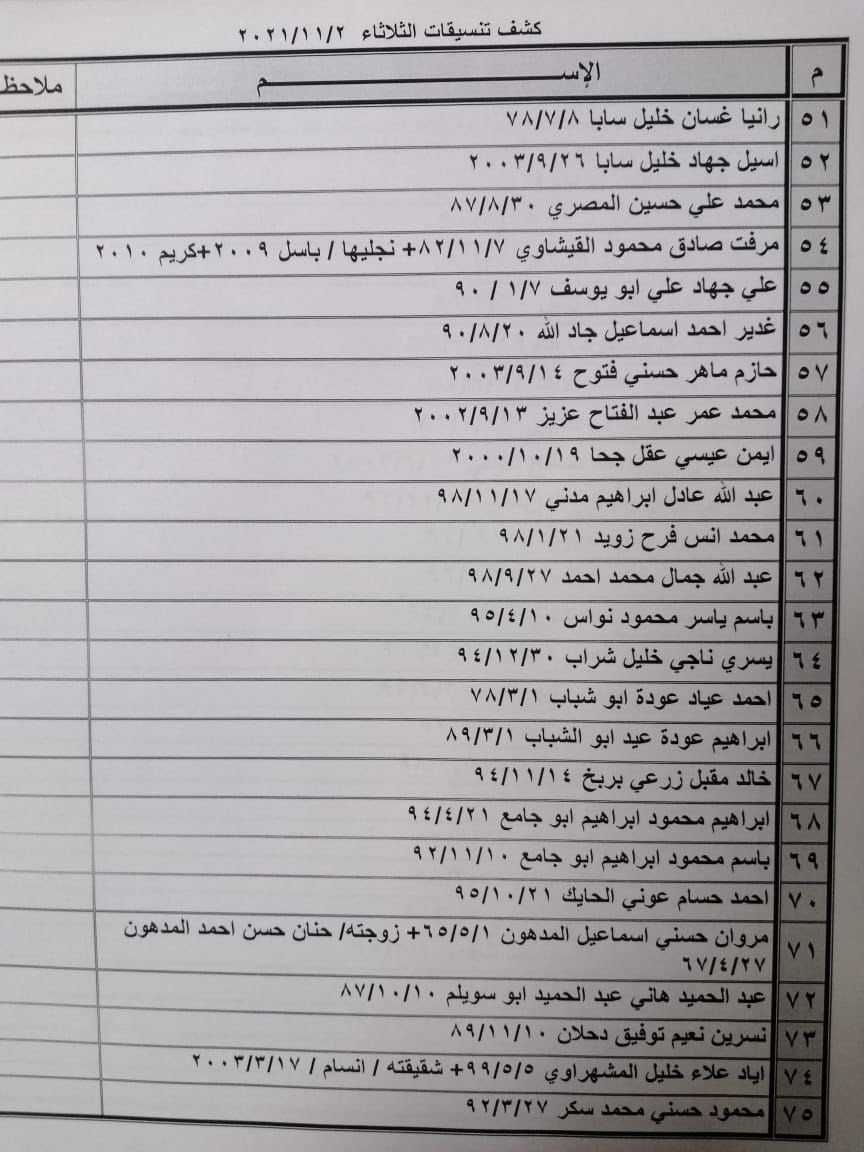 كشف تنسيقات الثلاثاء ٢٠٢١/١١/٢
م الإســـــــــــــــــم ملاحظ
٥١ رانيا غسان خليل سابا ٧٨/٧/٨
٥٢ اسيل جهاد خليل سابا ٢٠٠٣/٩/٢٦
٥٣ محمد علي حسين المصري ٨٧/٨/٣٠
٥٤ مرفت صادق محمود القيشاوي ٨٢/١١/٧+ نجليها / باسل ٢٠٠٩+كريم ٢٠١٠
٥٥ علي جهاد علي ابو يوسف ١/٧ / ٩٠
٥٦ غدير احمد اسماعيل جاد الله ٩٠/٨/٢٠
٥٧ حازم ماهر حسني فتوح ٢٠٠٣/٩/١٤
٥٨ محمد عمر عبد الفتاح عزيز ٢٠٠٢/٩/١٣
٥٩ ايمن عيسي عقل جحا ٢٠٠٠/١٠/١٩
٦٠ عبد الله عادل ابراهيم مدني ٩٨/١١/١٧
٦١ محمد انس فرح زويد ٩٨/١/٢١
٦٢ عبد الله جمال محمد احمد ٩٨/٩/٢٧
٦٣ باسم ياسر محمود نواس ٩٥/٤/١٠
٦٤ يسري ناجي خليل شراب ٩٤/١٢/٣٠
٦٥ احمد عياد عودة ابو شباب ٧٨/٣/١
٦٦ ابراهيم عودة عيد ابو الشباب ٨٩/٣/١
٦٧ خالد مقبل زرعي بربخ ٩٤/١١/١٤
٦٨ ابراهيم محمود ابراهيم ابو جامع ٩٤/٤/٢١
٦٩ باسم محمود ابراهيم ابو جامع ٩٢/١١/١٠
٧٠ احمد حسام عوني الحايك ٩٥/١٠/٢١
٧١ مروان حسني اسماعيل المدهون ٦٥/٥/١+ زوجته/ حنان حسن احمد المدهون
٦٧/٤/٢٧
٧٢ عبد الحميد هاني عبد الحميد ابو سويلم ٨٧/١٠/١٠
٧٣ نسرين نعيم توفيق دحلان ٨٩/١١/١٠
٧٤ اياد علاء خليل المشهراوي ٩٩/٥/٥+ شقيقته / انسام / ٢٠٠٣/٣/١٧
٧٥ محمود حسني محمد سكر ٩٢/٣/٢٧